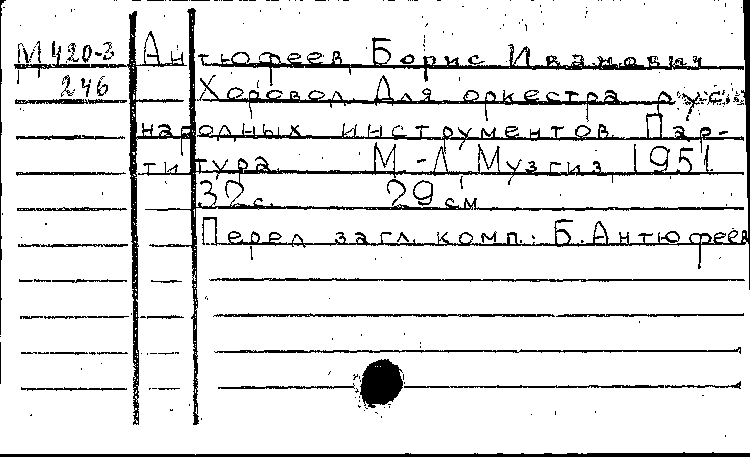 М 420-3 Антюфеев, Борис Иванович
246 Хоровод. Для оркестра русск.
народных инструментов. Пар-
титура. М.-Л., Музгиз, 1951.
32 с. 29 см
Перед загл. комп.: Б. Антюфеев